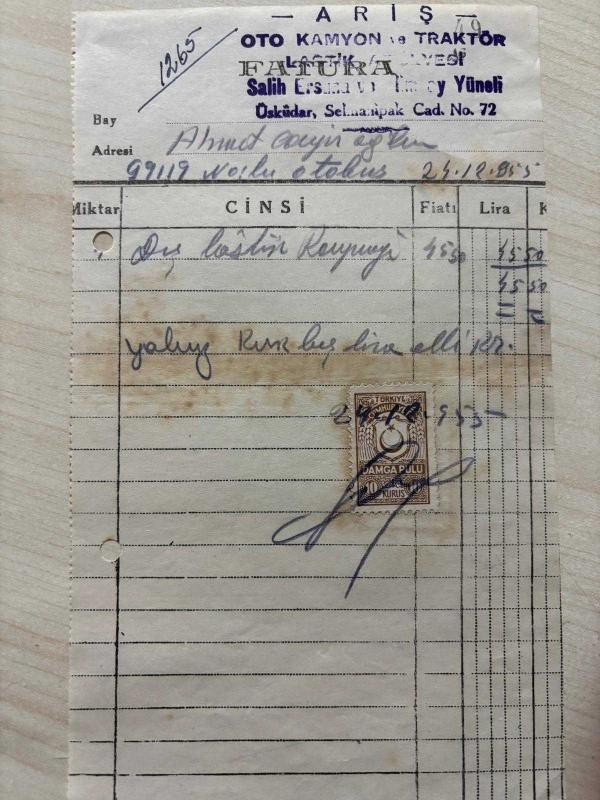 — ARİŞ —
49
1265
OTO KAMYON ve TRAKTÖR
LASTİK
FATURA
Salih Yüneli
Üsküdar, Selmanıpak Cad. No. 72
Bay
Adresi Ahmet
99119 Nolu otobus 24.12.955
Miktar CİNSİ Fiatı Lira K
Dış lâstik 45 50 45 50
45 50
yalnız Kırk beş lira elli Kr.
24-12-955
TÜRKİYE
CUMHURİYETİ
DAMGA PULU
10 10
KURUŞ